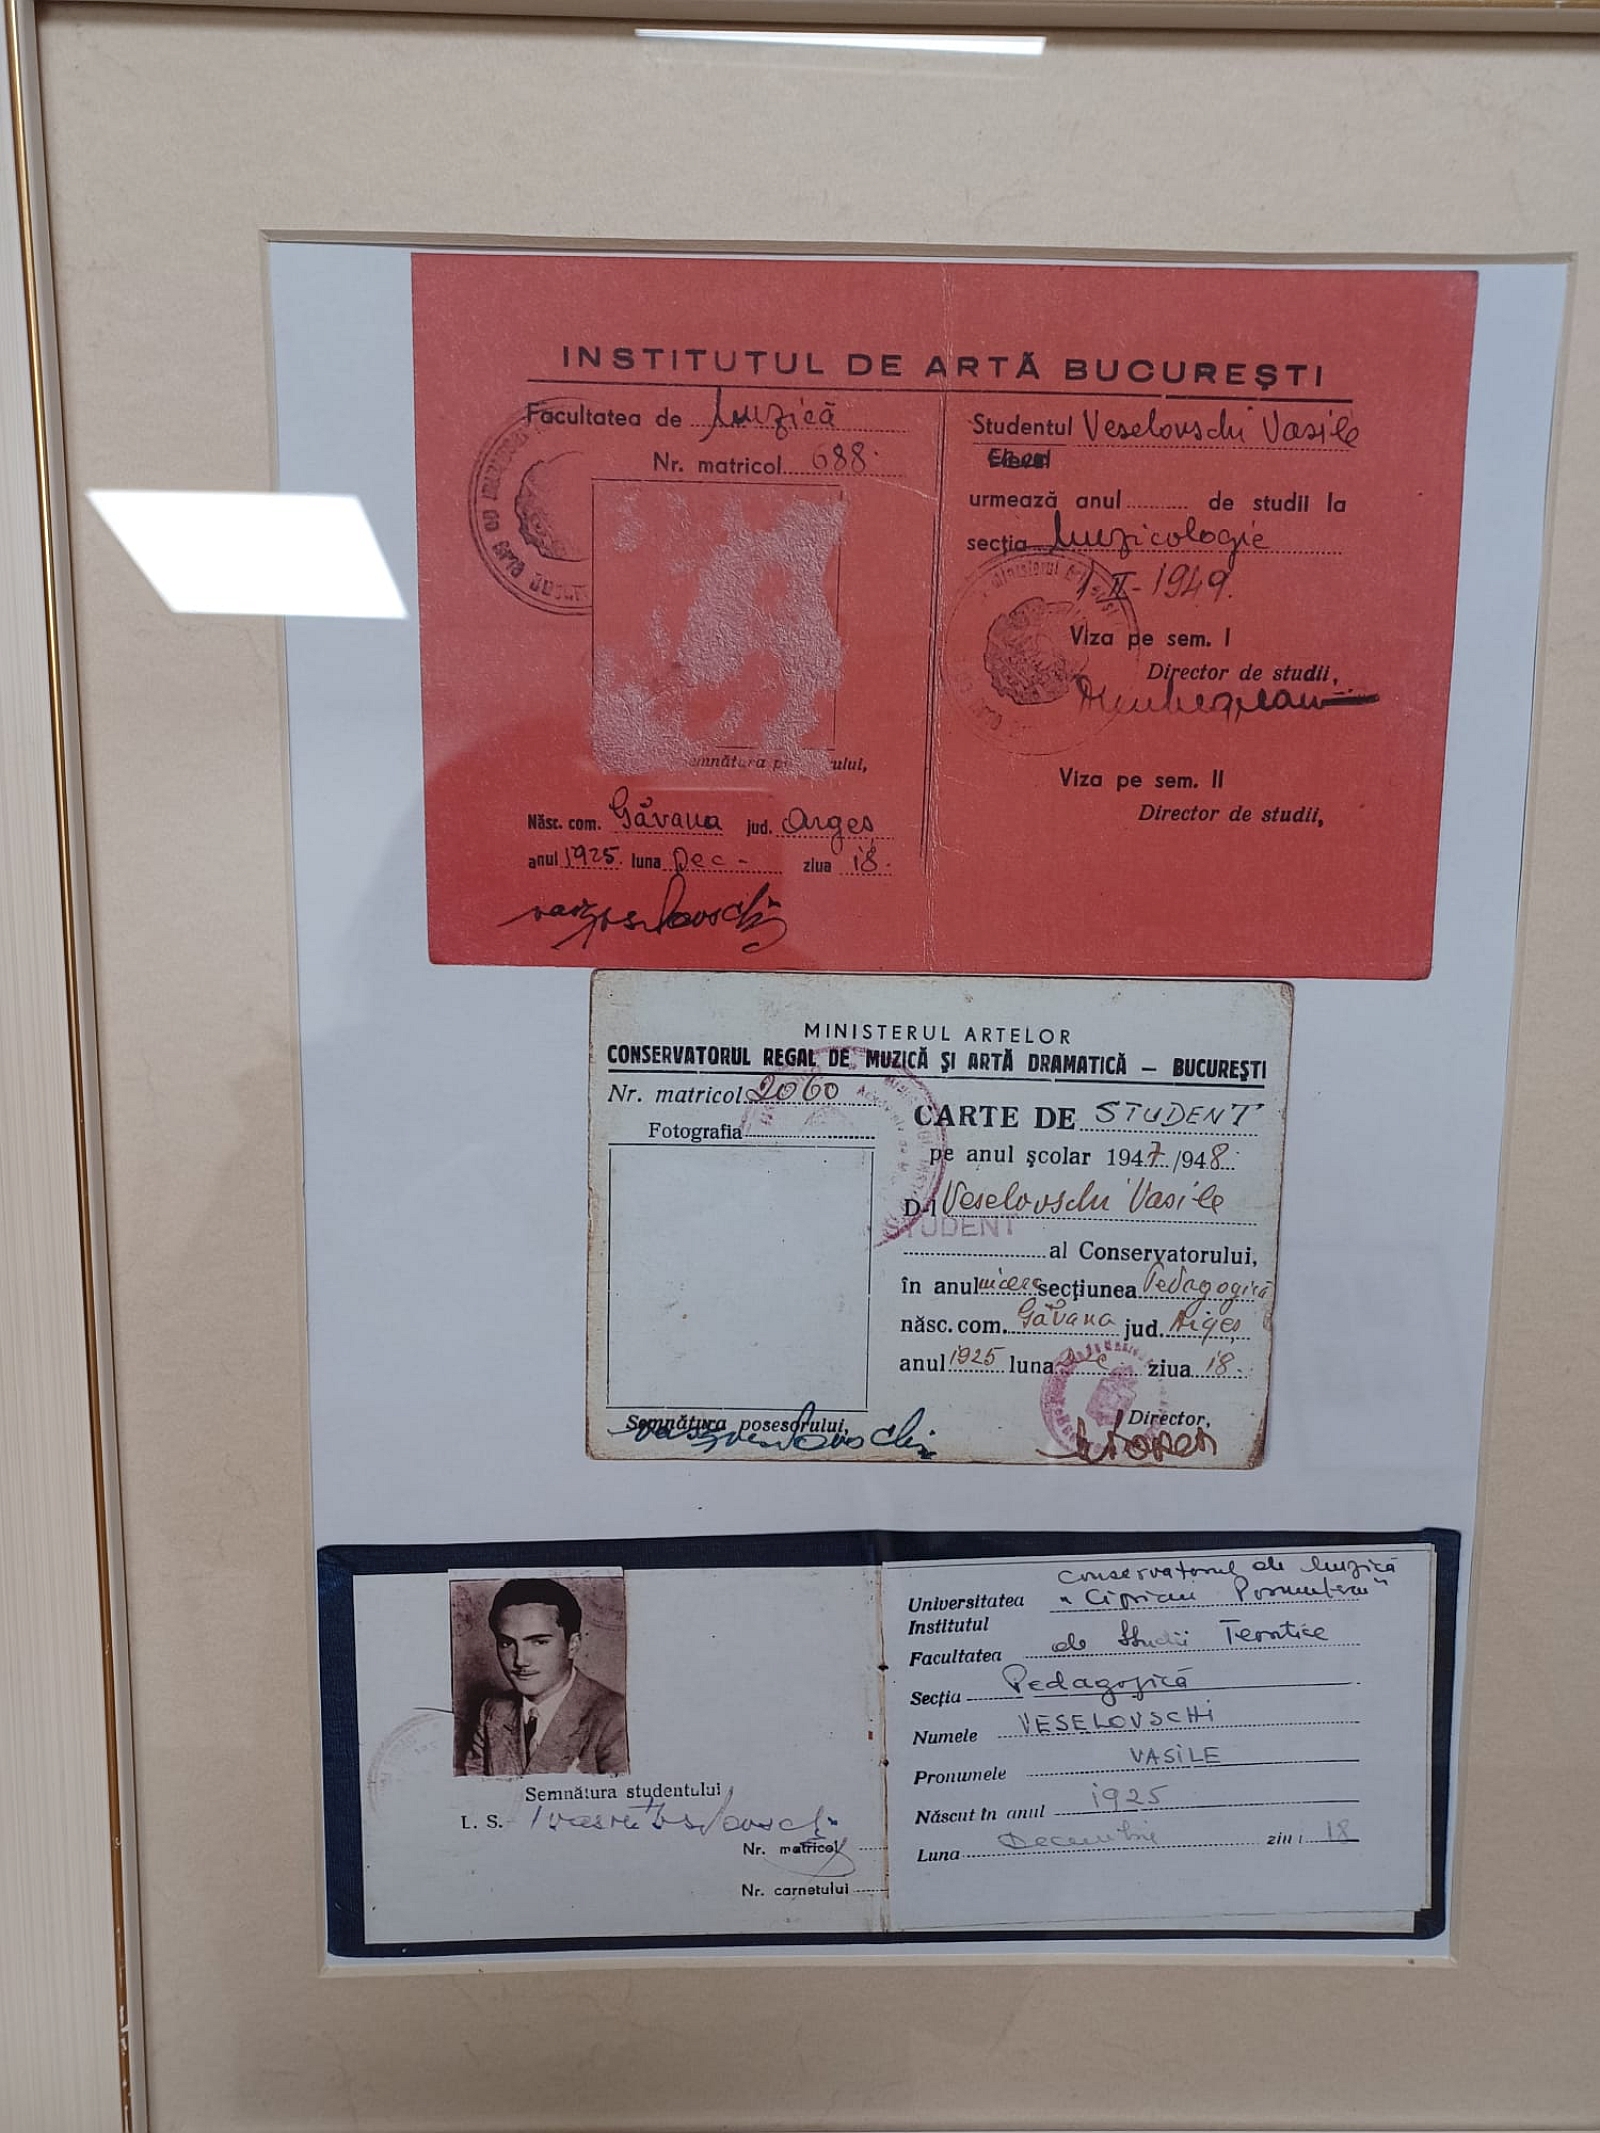 INSTITUTUL DE ARTĂ BUCUREȘTI
Facultatea de Muzică
Nr. matricol 688
Semnătura ului,
Născ. com. Găvana jud. Argeș
anul 1925 luna Dec- ziua 18
Studentul Veselovschi Vasile
Elevul
urmează anul de studii la
secția Muzicologie
II-1949.
Viza pe sem. I
Director de studii,
Viza pe sem. II
Director de studii,
MINISTERUL ARTELOR
CONSERVATORUL REGAL DE MUZICĂ ȘI ARTĂ DRAMATICĂ — BUCUREȘTI
Nr. matricol 2060
Fotografia
CARTE DE STUDENT
pe anul școlar 1947/948
D-l Veselovschi Vasile
STUDENT
al Conservatorului,
în anul secțiunea Pedagogică
născ. com. Găvana jud. Argeș
anul 1925 luna Dec ziua 18
Semnătura posesorului,
Director,
Semnătura studentului
L. S.
Nr. matricol
Nr. carnetului
Conservatorul de Muzică
Universitatea "Ciprian Porumbescu"
Institutul
Facultatea de Studii Teoretice
Secția Pedagogică
Numele VESELOVSCHI
Pronumele VASILE
Născut în anul 1925
Luna Decembrie ziua 18